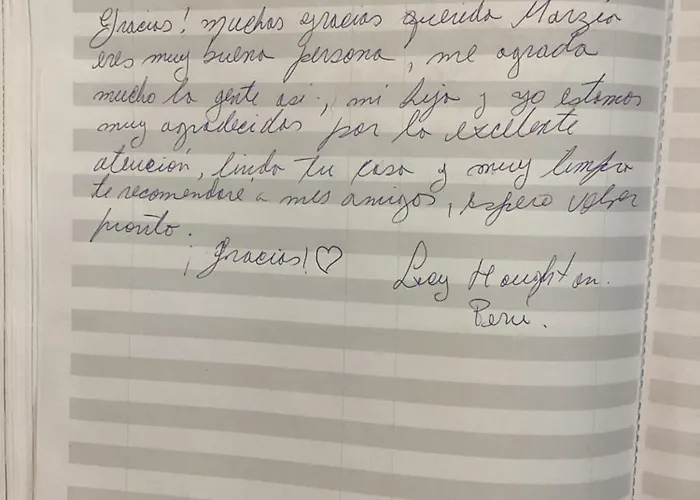 Gracias! muchas gracias querida Marzia
eres muy buena persona, me agrada
mucho la gente asi, mi hija y yo estamos
muy agradecidas por la excelente
atención, linda tu casa y muy limpia
te recomendaré a mis amigos, espero volver
pronto.
¡Gracias!♡
Houghton.
Perú.